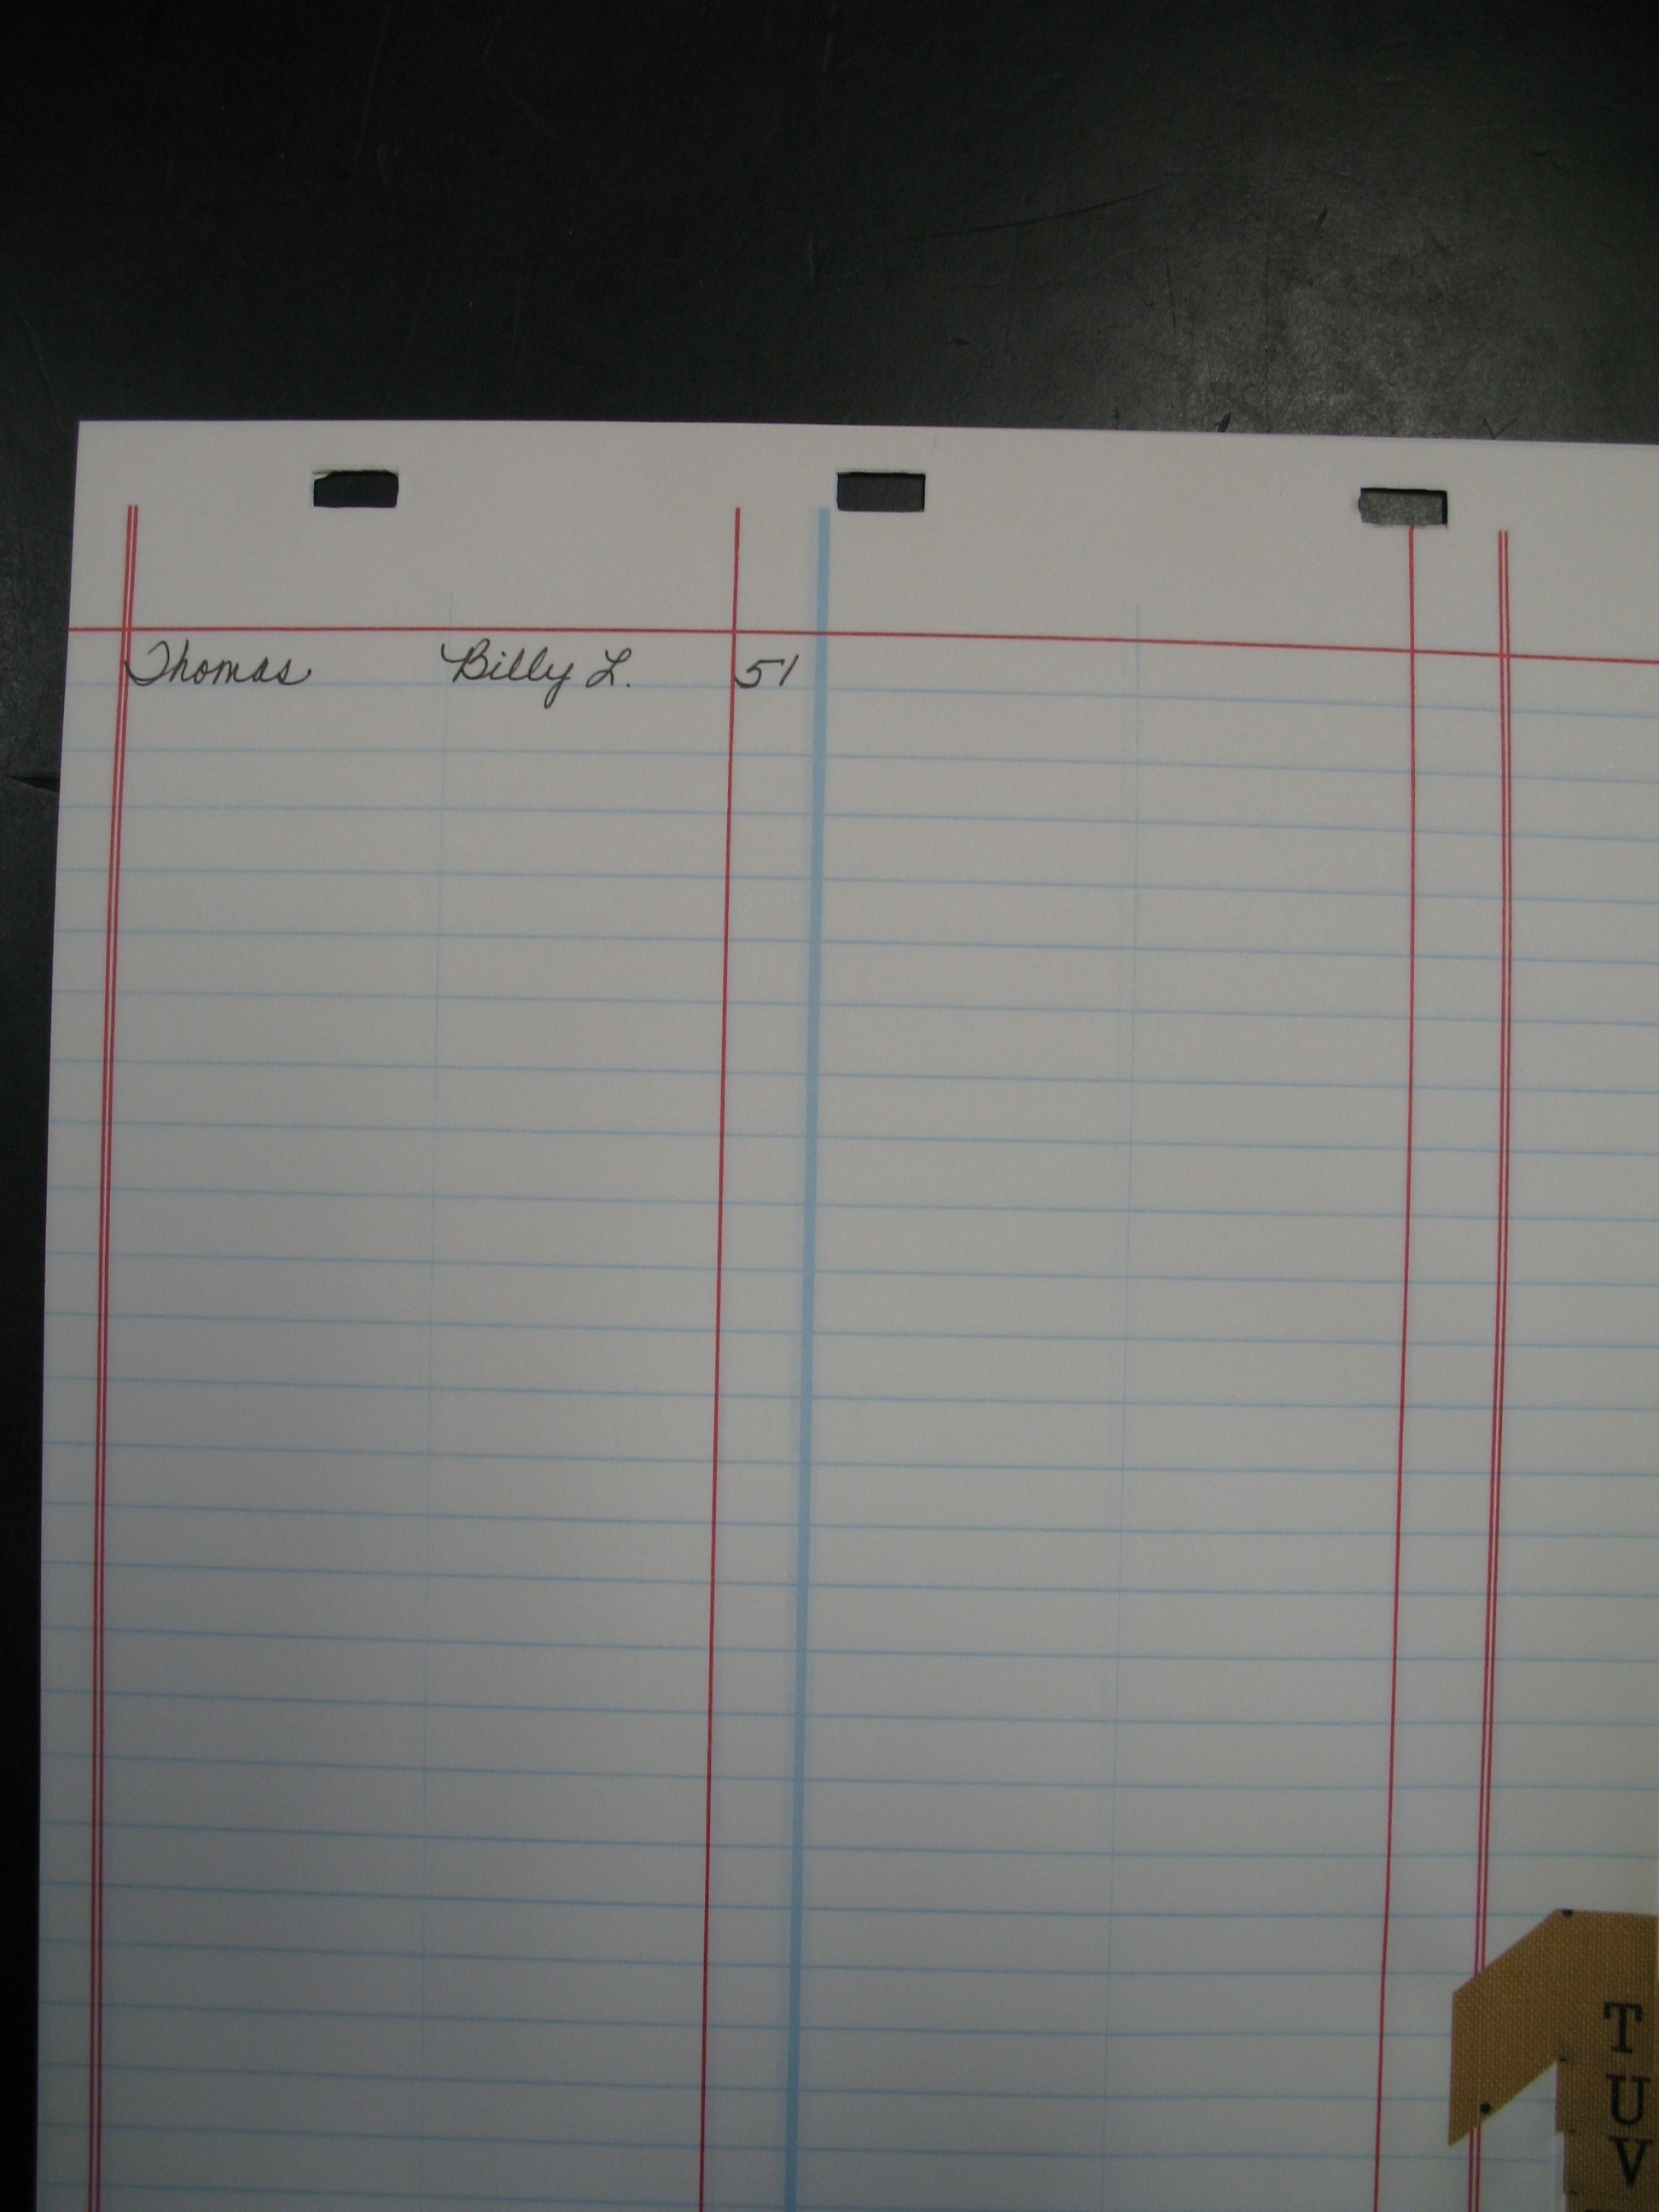 Thomas Billy L. 51
T
U
V